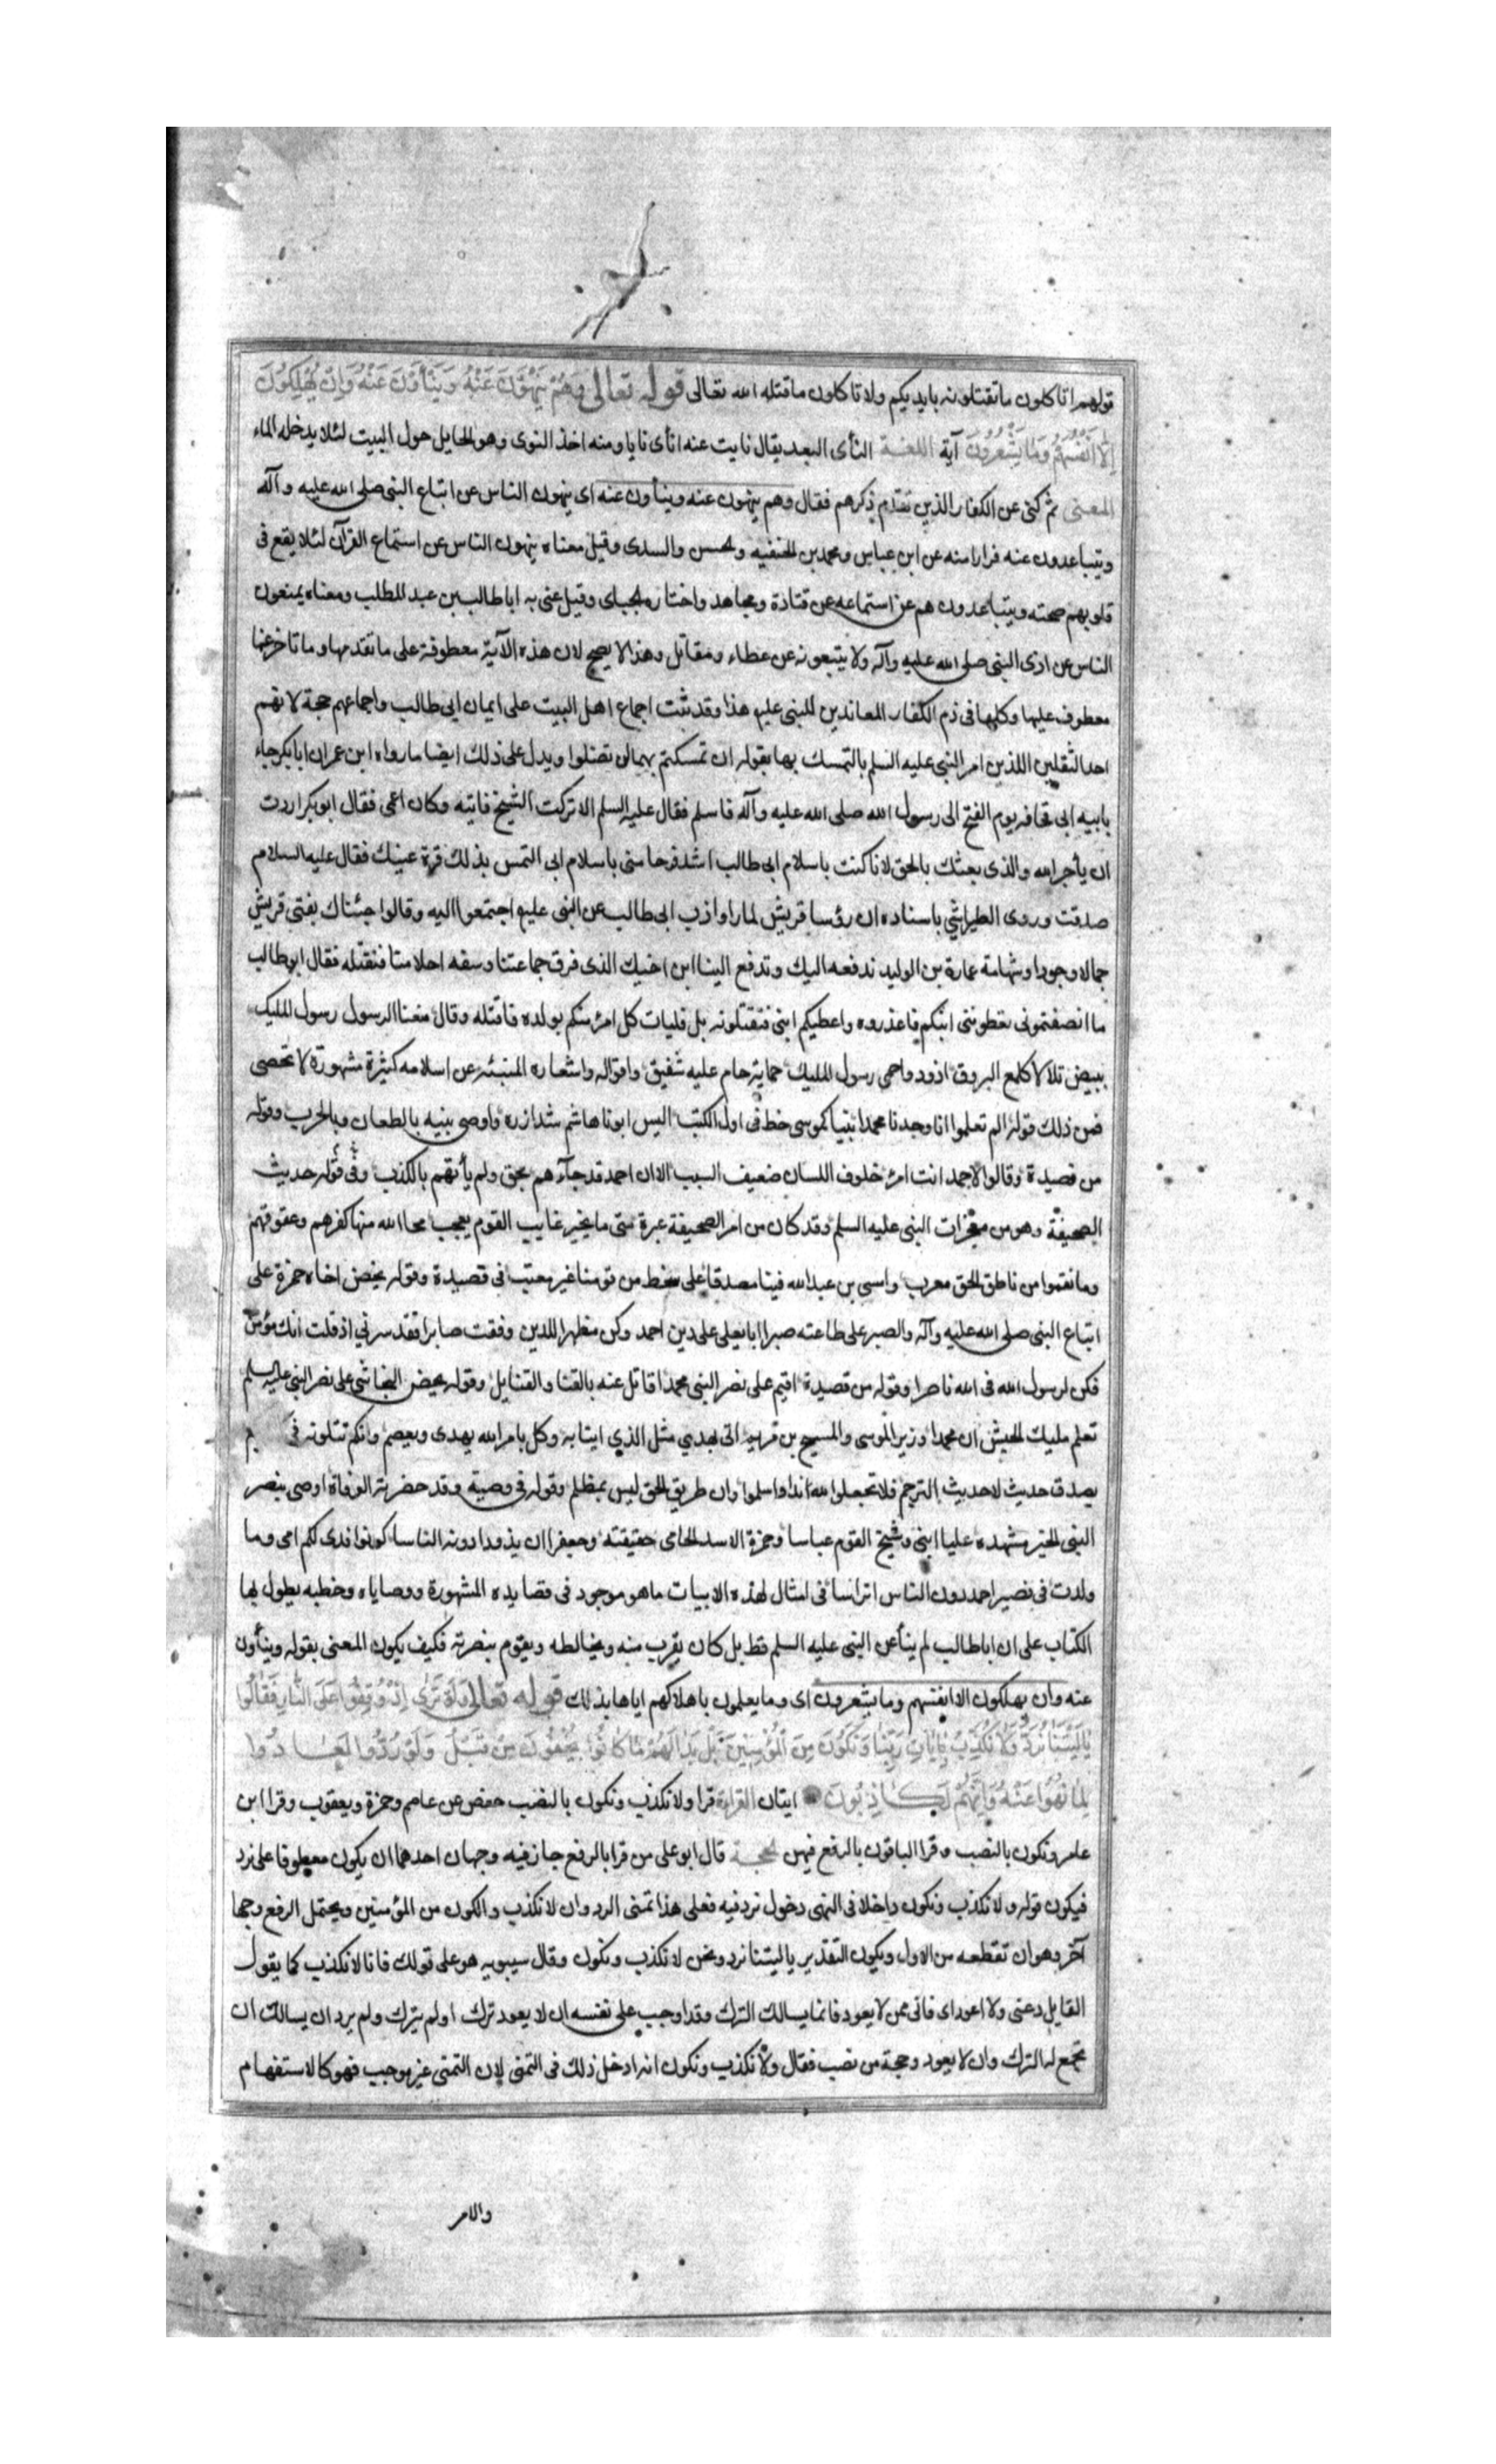 قولهم اتاكلون ما تقتلونه بايديكم ولا تاكلون ما قتله الله تعالى قوله تعالى وَهُمْ يَنْهَوْنَ عَنْهُ وَيَنْأَوْنَ عَنْهُ وَاِنْ يُهْلِكُونَ
اِلَّا اَنْفُسَهُمْ وَمَا يَشْعُرُونَ آية اللغة النأى البعد يقال نايت عنه انأى نايا ومنه اخذ النوى وهو الحايل حول البيت لئلا يدخله الماء
المعنى ثم كنى عن الكفار الذين تقدم ذكرهم فقال وهم ينهون عنه وينأون عنه اى ينهون الناس عن اتباع النبى صلى الله عليه وآله
ويتباعدون عنه فرارا منه عن ابن عباس ومحمد بن الحنفيه والحسن والسدى وقيل معناه ينهون الناس عن استماع القرآن لئلا يقع فى
قلوبهم صحته ويتباعدون هم عن استماعه عن قتادة ومجاهد واختاره الجباى وقيل عنى به اباطالب بن عبد المطلب ومعناه يمنعون
الناس عن اذى النبى صلى الله عليه وآله ولا يتبعونه عن عطاء ومقاتل وهذا لا يصح لان هذه الآية معطوفة على ما تقدمها وما تاخر عنها
معطوف عليها وكلها فى ذم الكفار المعاندين للنبى عليه هذا وقد ثبت اجماع اهل البيت على ايمان ابى طالب واجماعهم حجة لانهم
احد الثقلين اللذين امر النبى عليه السلم بالتمسك بها بقوله ان تمسكتم بهما لن تضلوا ويدل على ذلك ايضا ما رواه ابن عمر ان ابا بكر جاء
بابيه ابى قحافه يوم الفتح الى رسول الله صلى الله عليه وآله فاسلم فقال عليه السلم الا تركت الشيخ فاتيه وكان اعمى فقال ابوبكر اردت
ان يأجر الله والذى بعثك بالحق لانا كنت باسلام ابى طالب اشد فرحا منى باسلام ابى التمس بذلك قرة عينك فقال عليه السلام
صدقت وروى الطبراني باسناده ان رؤسا قريش لما راوا ذب ابى طالب عن النبى عليه اجتمعوا اليه وقالوا جئناك بفتى قريش
جمالا وجودا وشهامة عمارة بن الوليد ندفعه اليك وتدفع الينا ابن اخيك الذى فرق جماعتنا وسفه احلامنا فنقتله فقال ابوطالب
ما انصفتمونى تعطوننى ابنكم فاغذوه واعطيكم ابنى فتقتلونه بل فليات كل امرئ منكم بولده فاقتله وقال منعنا الرسول رسول المليك
ببيض تلالا كلمع البروق اذود واحمى رسول المليك حماية حام عليه شفيق واقواله واشعاره المنبئه عن اسلامه كثيرة مشهورة لا تحصى
فمن ذلك قوله الم تعلموا انا وجدنا محمدا نبيا كموسى خط فى اول الكتب اليس ابونا هاشم شد ازره واوصى بنيه بالطعان وبالحرب وقوله
من قصيدة وقالوا لاحمد انت امرء خلوف اللسان ضعيف السبب الا ان احمد قد جآءهم بحق ولم يأتهم بالكذب وفى قوله حديث
الصحيفة وهو من معجزات النبى عليه السلم وقد كان من امر الصحيفة عبرة متى ما يخبر غايب القوم يعجب محا الله منها كفرهم وعقوقهم
وما نقموا من ناطق الحق معرب وامسى بن عبدالله فينا مصدقا على سخط من قومنا غير معتب فى قصيدة وقوله يحض اخاه حمزة على
اتباع النبى صلى الله عليه وآله والصبر على طاعته صبرا ابا يعلى على دين احمد وكن مظهرا للدين وفقت صابرا فقد سرني اذ قلت انك مؤمن
فكن لرسول الله فى الله ناصرا وقوله من قصيدة اقيم على نصر النبى محمد اقاتل عنه بالقنا والقنابل وقوله يحض النجاشى على نصر النبى عليه السلم
تعلم مليك الحبش ان محمدا وزير لموسى والمسيح بن مريم اتى بهدي مثل الذي ايتا به وكل بامر الله يهدى ويعصم وانكم تتلونه فى
بصدق حديث لا حديث الترجم فلا تجعلوا لله اندادا واسلموا وان طريق الحق ليس بمظلم وقوله فى وصية وقد حضرته الوفاة اوصى بنصر
النبى الخير مشهده عليا ابنى وشيخ القوم عباسا وحمزة الاسد الحامى حقيقته وجعفرا ان يذودا دونه الناسا كونوا فدى لكم امى وما
ولدت فى نصر احمد دون الناس اتراسا فى امثال لهذه الابيات ما هو موجود فى قصايده المشهورة ووصاياه وخطبه يطول بها
الكتاب على ان اباطالب لم ينأ عن النبى عليه السلم قط بل كان يقرب منه ويخالطه ويقوم بنصرته فكيف يكون المعنى بقوله وينأون
عنه وان يهلكون الا انفسهم وما يشعرون اى وما يعلمون باهلاكهم اياها بذلك قوله تعالى وَلَوْ تَرٰى اِذْ وُقِفُوا عَلَى النَّارِ فَقَالُوا
يَا لَيْتَنَا نُرَدُّ وَلَا نُكَذِّبَ بِاٰيَاتِ رَبِّنَا وَنَكُونَ مِنَ الْمُؤْمِنِينَ بَلْ بَدَا لَهُمْ مَا كَانُوا يُخْفُونَ مِنْ قَبْلُ وَلَوْ رُدُّوا لَعَادُوا
لِمَا نُهُوا عَنْهُ وَاِنَّهُمْ لَكَاذِبُونَ ايتان القراءة قرا ولا نكذب ونكون بالنصب حفص عن عاصم وحمزة ويعقوب وقرا ابن
عامر ونكون بالنصب وقرا الباقون بالرفع فيهن الحجة قال ابو على من قرا بالرفع جاز فيه وجهان احدهما ان يكون معطوفا على نرد
فيكون قوله ولا نكذب ونكون داخلا فى النهى دخول نرد فيه فعلى هذا تمنى الرد وان لا نكذب والكون من المؤمنين ويحتمل الرفع وجها
آخر وهو ان تقطعه من الاول ويكون التقدير يا ليتنا نرد ونحن لا نكذب ونكون وقال سيبويه هو على قولك فانا لا نكذب كما يقول
القايل دعنى ولا اعود اى فانى ممن لا يعود فانما يسالك الترك وقد اوجب على نفسه ان لا يعود ترك او لم يترك ولم يرد ان يسالك ان
تجمع له الترك وان لا يعود وحجة من نصب فقال ولا نكذب ونكون انه ادخل ذلك فى التمنى لان التمنى غير موجب فهو كالاستفهام
والامر